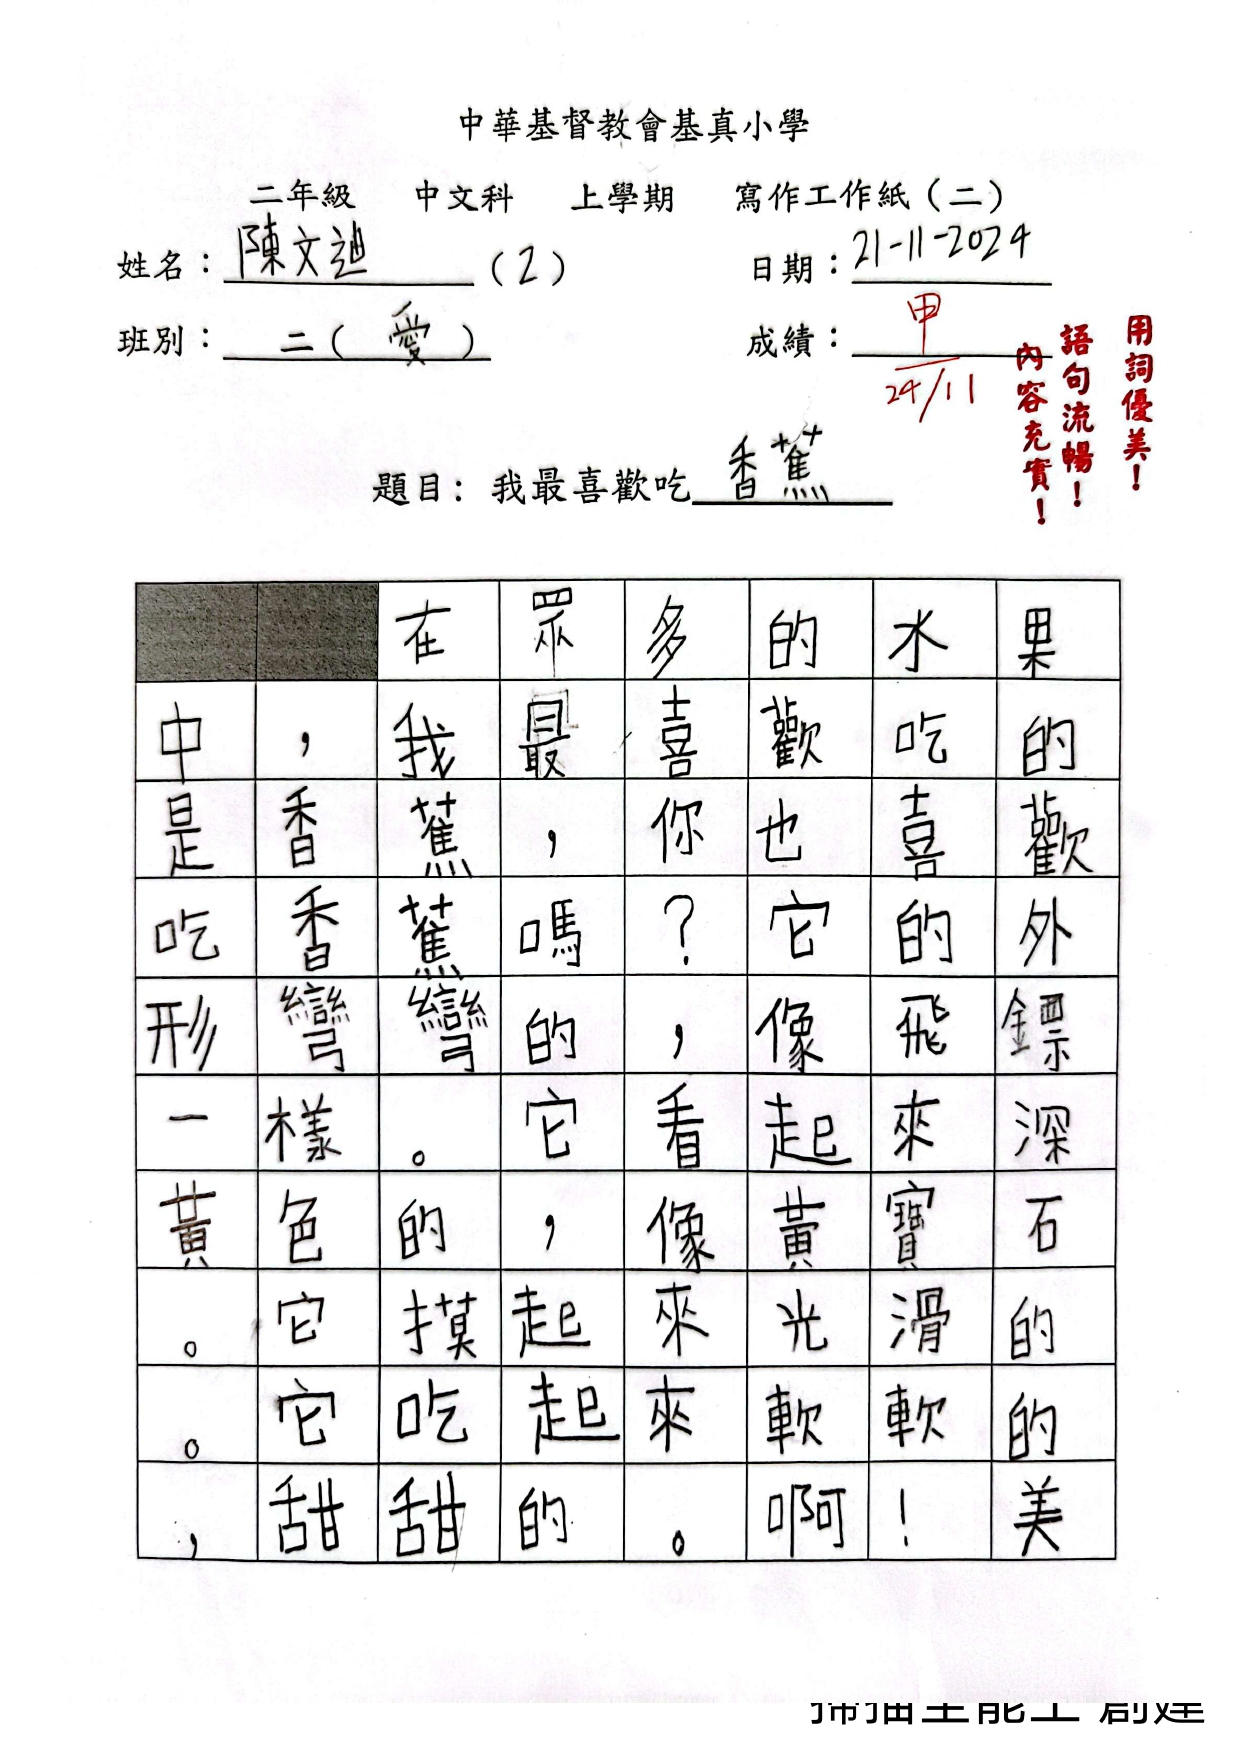 中華基督教會基真小學
二年級 中文科 上學期 寫作工作紙（二）
姓名：陳文迪（2） 日期：21-11-2024
班別：二（愛） 成績：甲
24/11
用詞優美！
語句流暢！
內容充實！
題目：我最喜歡吃香蕉
在眾多的水果
中，我最喜歡吃的
是香蕉，你也喜歡
吃香蕉嗎？它的外
形彎彎的，像飛鏢
一樣。它看起來深
黃色的，像黃寶石
。它摸起來光滑的
。它吃起來軟軟的
，甜甜的。啊！美